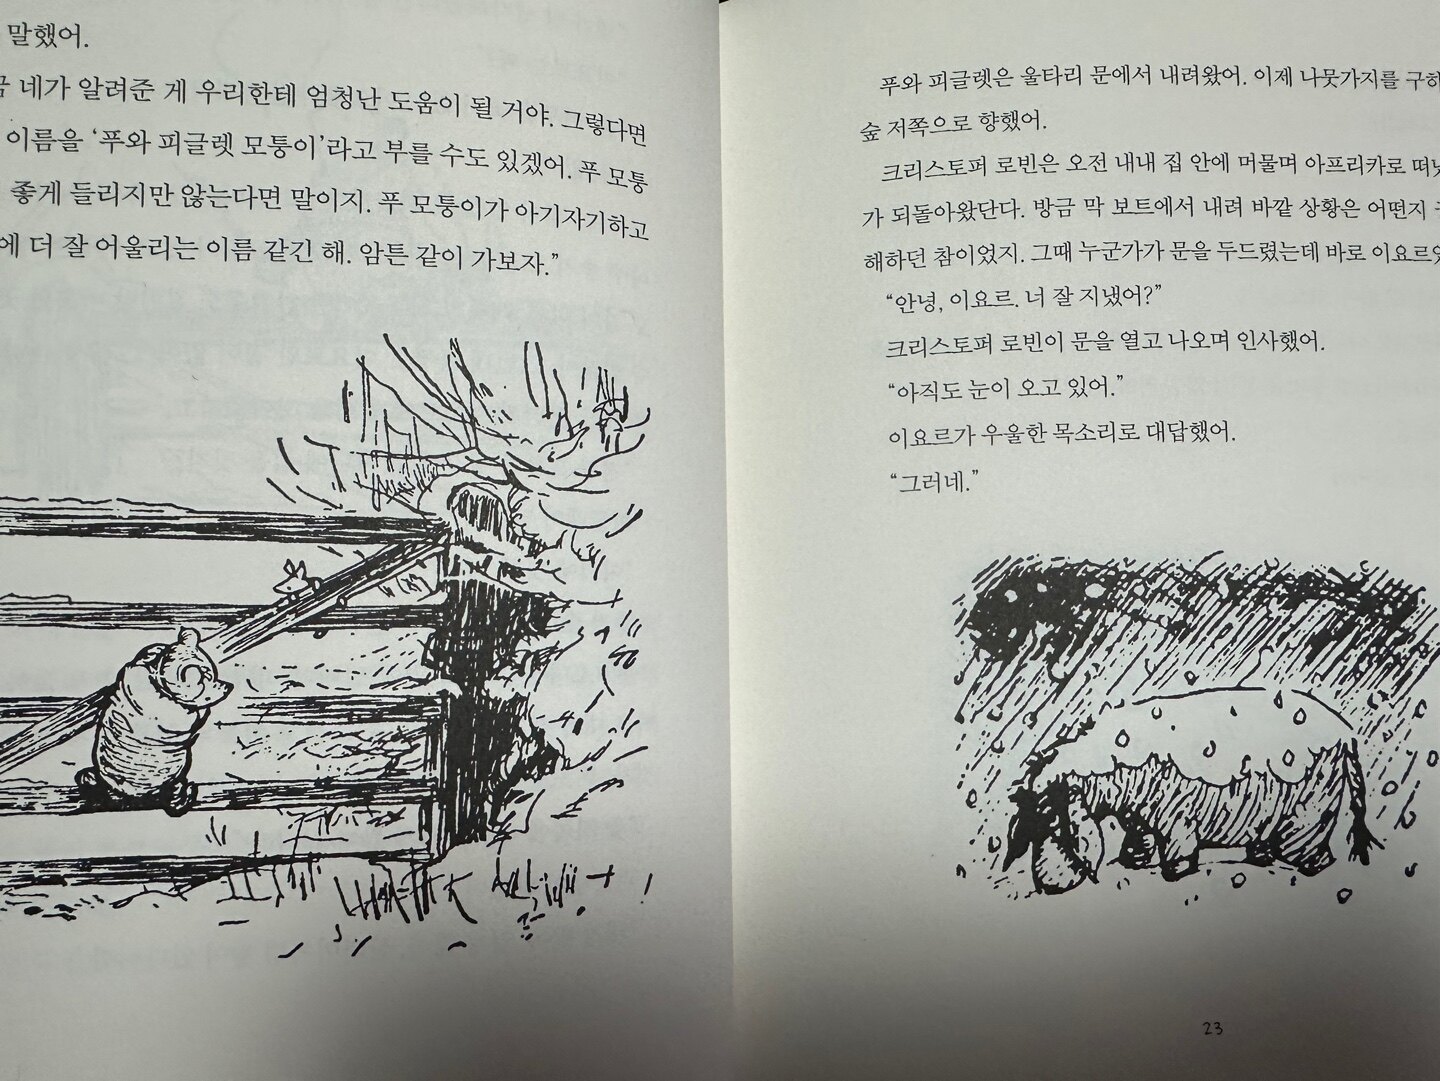 말했어.
네가 알려준 게 우리한테 엄청난 도움이 될 거야. 그렇다면
이름을 ‘푸와 피글렛 모퉁이’라고 부를 수도 있겠어. 푸 모퉁
좋게 들리지만 않는다면 말이지. 푸 모퉁이가 아기자기하고
에 더 잘 어울리는 이름 같긴 해. 암튼 같이 가보자.”
푸와 피글렛은 울타리 문에서 내려왔어. 이제 나뭇가지를 구하
숲 저쪽으로 향했어.
크리스토퍼 로빈은 오전 내내 집 안에 머물며 아프리카로 떠났
가 되돌아왔단다. 방금 막 보트에서 내려 바깥 상황은 어떤지
해하던 참이었지. 그때 누군가가 문을 두드렸는데 바로 이요르였
“안녕, 이요르. 너 잘 지냈어?”
크리스토퍼 로빈이 문을 열고 나오며 인사했어.
“아직도 눈이 오고 있어.”
이요르가 우울한 목소리로 대답했어.
“그러네.”
23